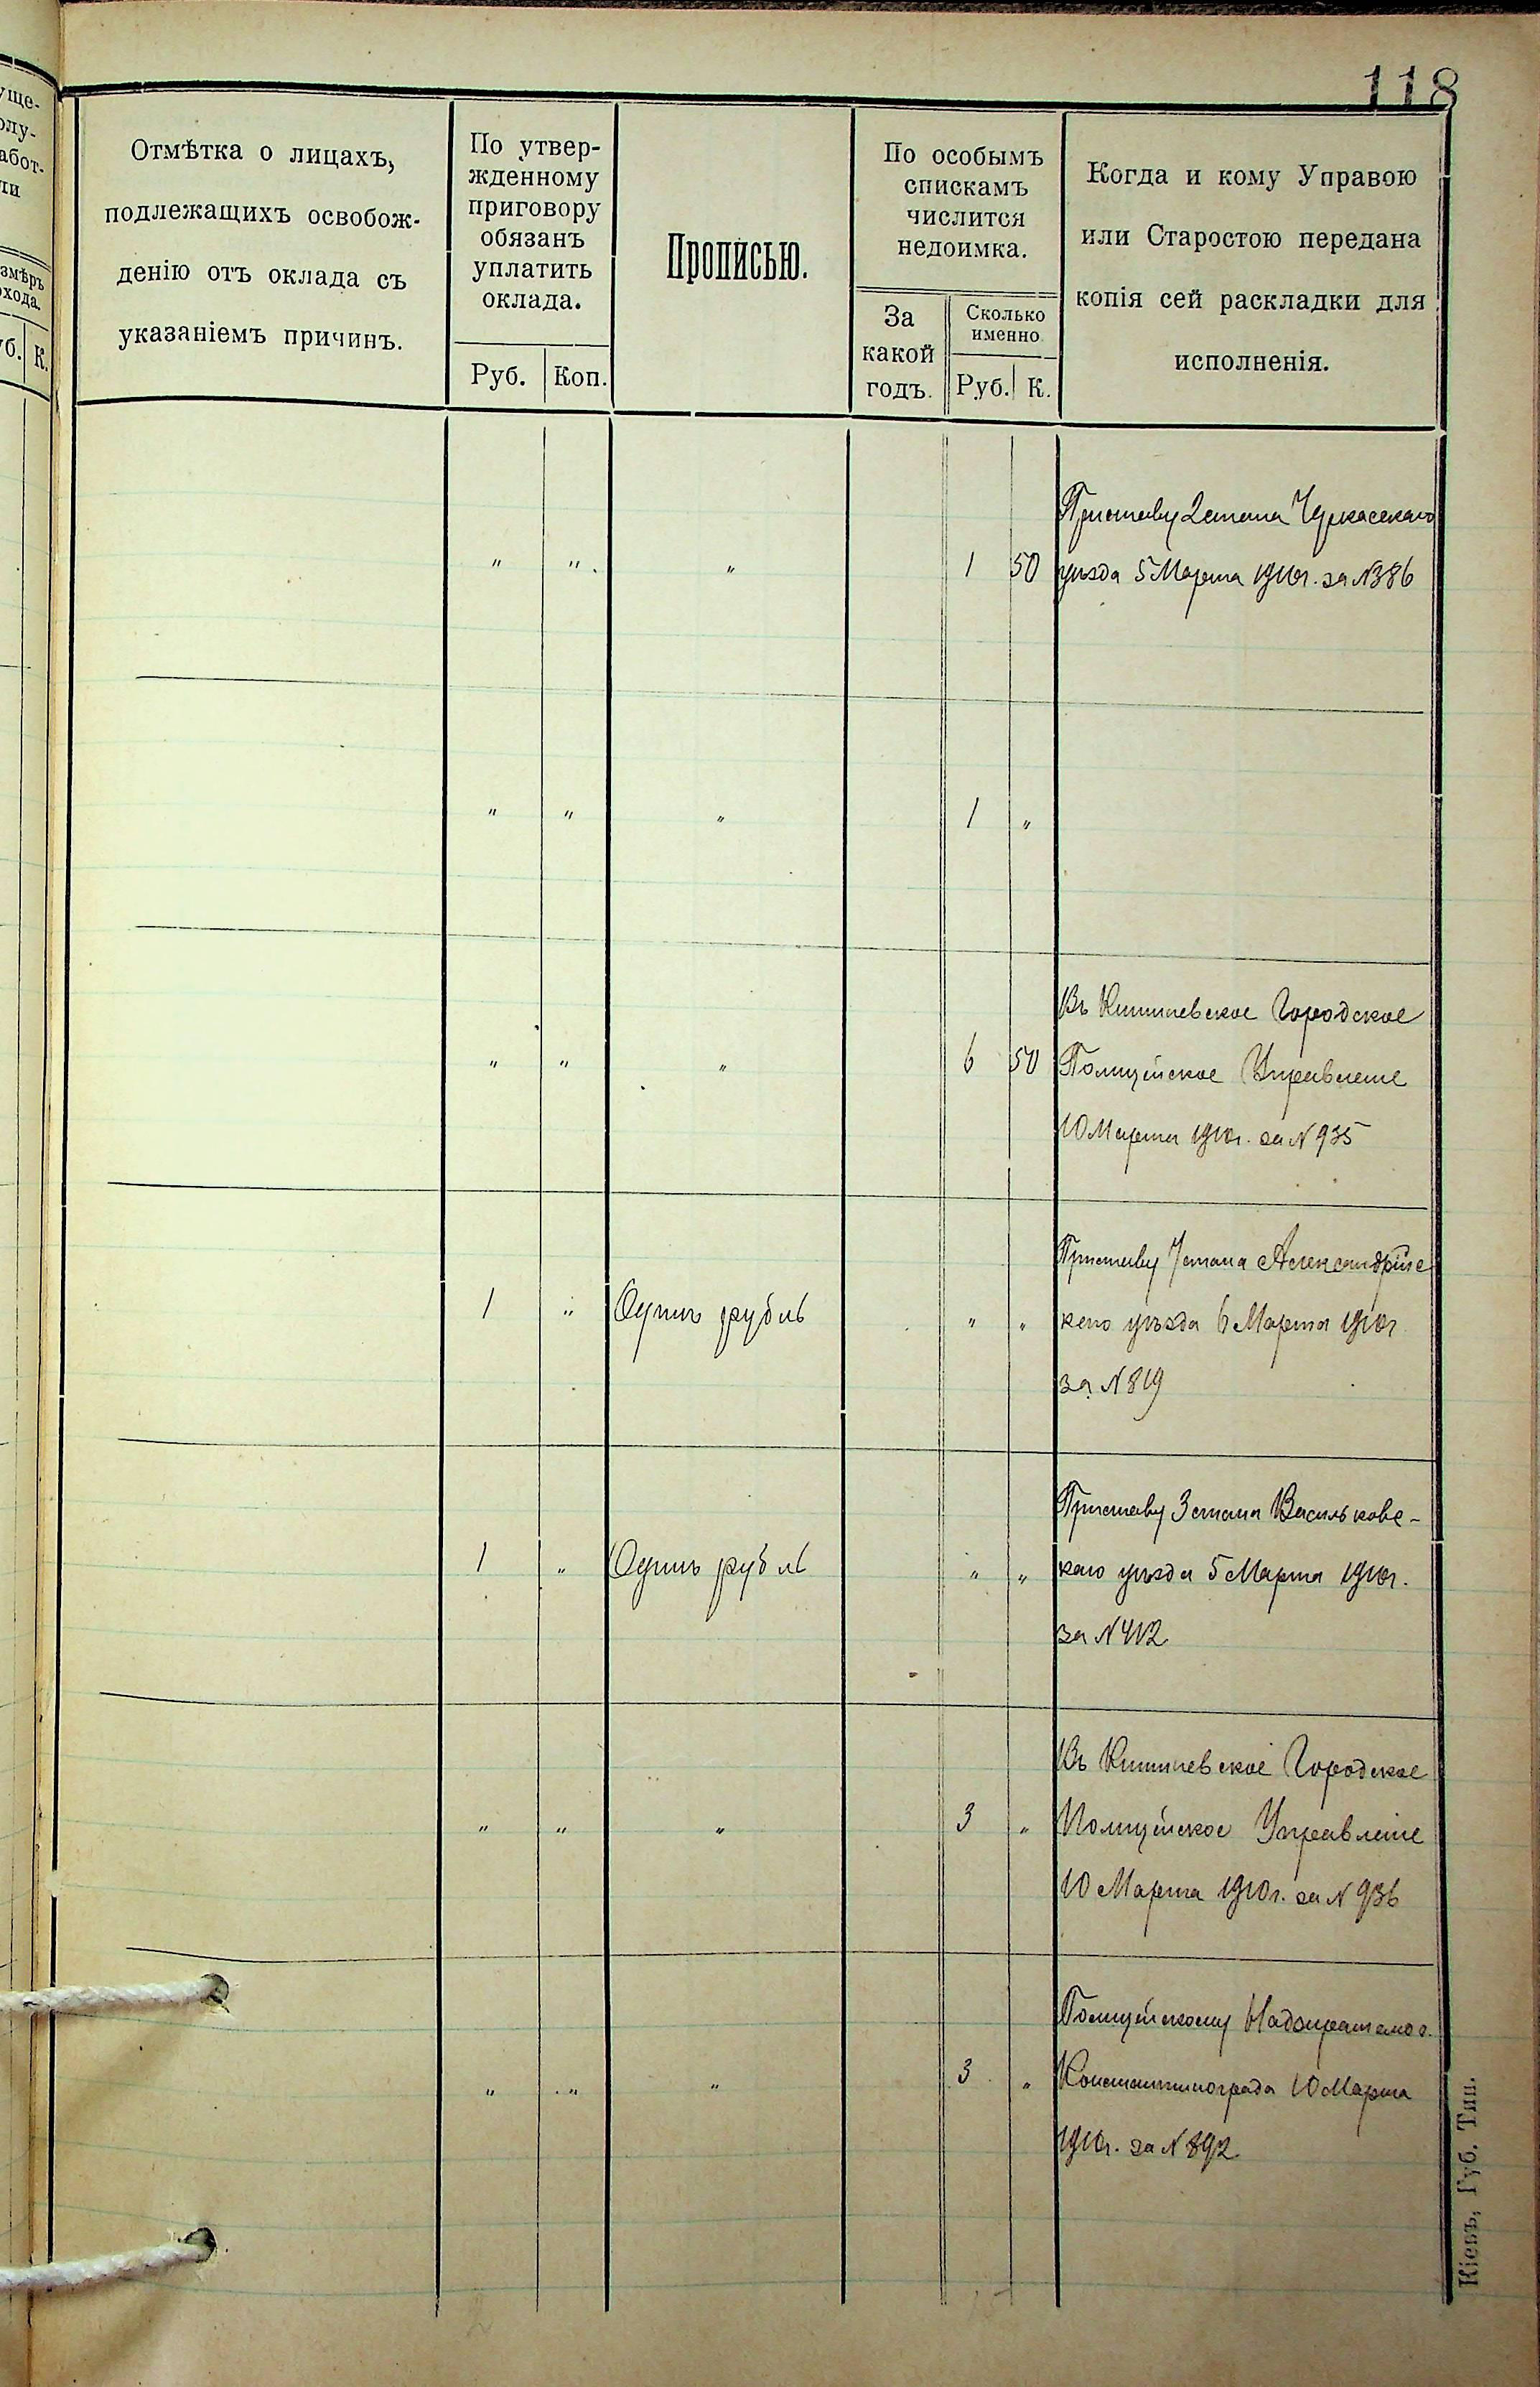 118
уще-
олу-
абот-
ли
змѣръ
охода.
уб. К.
Отмѣтка о лицахъ,
подлежащихъ освобож-
денію отъ оклада съ
указаніемъ причинъ.
По утвер-
жденному
приговору
обязанъ
уплатить
оклада.
Руб. Коп.
Прописью.
По особымъ
спискамъ
числится
недоимка.
За
какой
годъ.
Сколько
именно
Руб. К.
Когда и кому Управою
или Старостою передана
копія сей раскладки для
исполненія.
Приставу 2 стана Черкасскаго
" " " 1 50 уѣзда 5 Марта 1910г. за N386
" " " 1 "
Въ Кишиневское Городское
" " " 6 50 Полицейское Управление
10 Марта 1910г. за N 935
Приставу стана Александрійс
1 " Одинъ рубль " " каго уѣзда 6 Марта 1910г
за N 819
Приставу 3 стана Васильковс-
1 " Одинъ рубль " " каго уѣзда 5 Марта 1910г.
за N 412
Въ Кишиневское Городское
" " " 3 " Полицейское Управление
10 Марта 1910г. за N 936
Полицейскому Надзирателю г.
" " " 3 " Константинограда 10 Марта
1910г. за N 892
Кіевъ, Губ. Тип.